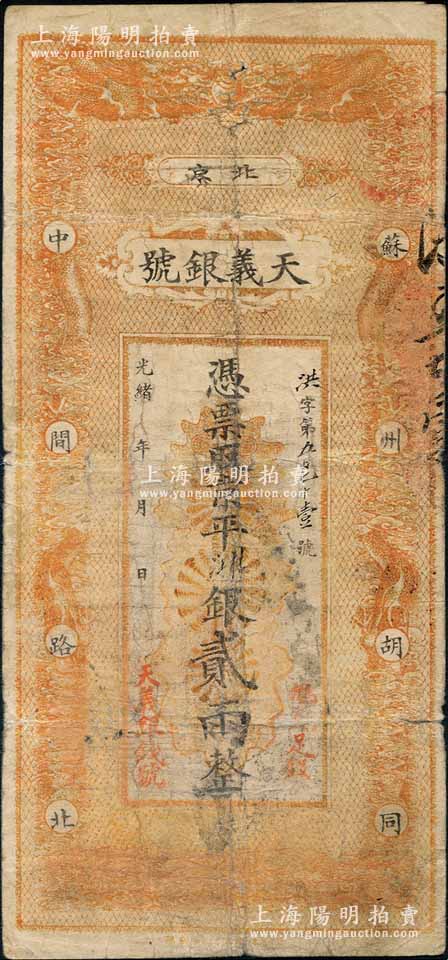 上海陽明拍賣
www.yangmingauction.com
北京
天義銀號
蘇州胡同
中間路北
洪字第 壹號
憑票 平 銀貳兩整
光緒 年 月 日
足紋
天義銀號
上海陽明拍賣
www.yangmingauction.com
上海陽明拍賣
www.yangmingauction.com
上海陽明拍賣
www.yangmingauction.com